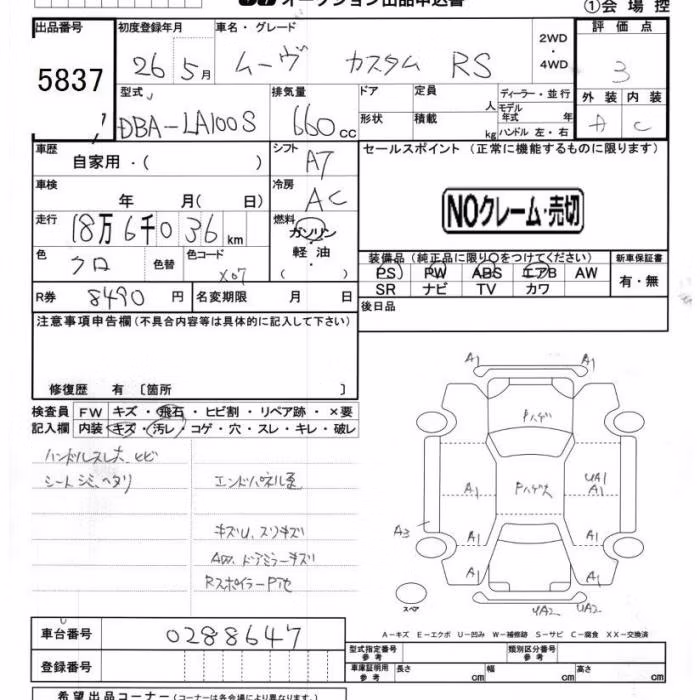 オークション出品申込書
①会場控
出品番号 初度登録年月 車名・グレード 2WD・4WD 評価点
5837 26年5月 ムーヴ カスタム RS 3
型式 排気量 ドア 定員 人 ディーラー・並行 外装 内装
DBA-LA100S 660cc 形状 積載 kg モデル年式 年 ハンドル 左・右 A C
車歴 自家用・( ) シフト A7 セールスポイント (正常に機能するものに限ります)
車検 年 月( 日) 冷房 AC
NOクレーム・売切
走行 18万6千036km 燃料 ガソリン・軽油・( )
色 クロ 色替 色コード X07
装備品 (純正品に限り○をつけてください) 新車保証書
PS PW ABS エアB AW 有・無
SR ナビ TV カワ
R券 8490円 名変期限 月 日 後日品
注意事項申告欄 (不具合内容等は具体的に記入して下さい)
修復歴 有 [箇所 ]
検査員記入欄 FW キズ・飛石・ヒビ割・リペア跡・×要
内装 キズ・汚レ・コゲ・穴・スレ・キレ・破レ
ハンドルスレ大、ヒビ
シートシミ、ヘタリ エンドパネル歪
キズU、スリキズ
ドアミラーキズ
Rスポイラー
A1 A1
Pハゲ
A1 Pハゲ大 UA1 A1
A3 A1 A1
A1 A1
スペア
YA2 UA2
A-キズ E-エクボ U-凹み W-補修跡 S-サビ C-腐食 XX-交換済
車台番号 0288647
型式指定番号 参考 類別区分番号 参考
登録番号 車庫証明用 参考 長さ cm 幅 cm 高さ cm
希望出品コーナー (コーナーは各会場により異なります。)